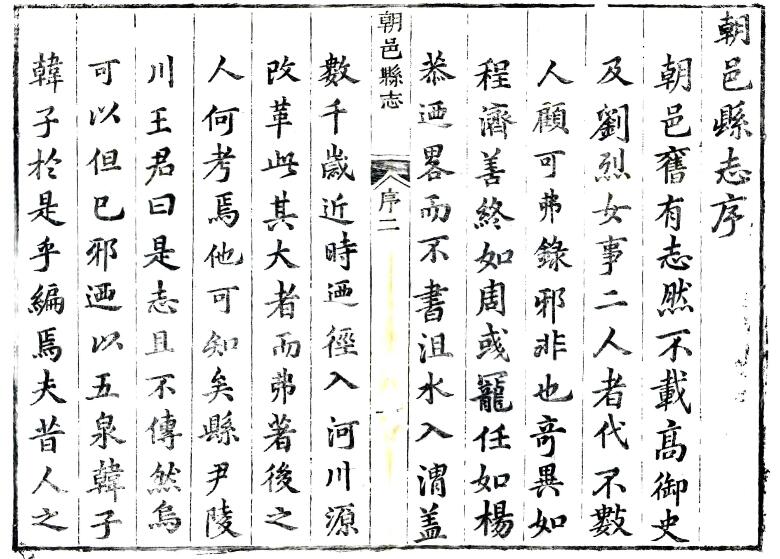 朝邑縣志序
朝邑舊有志然不載高御史
及劉烈女事二人者代不數
人顧可弗錄邪非也奇異如
程濟善終如周或寵任如楊
恭迺畧而不書沮水入渭蓋
朝邑縣志
序二
數千歲近時迺徑入河川源
改革此其大者而弗著後之
人何考焉他可知矣縣尹陵
川王君曰是志且不傳然烏
可以但已邪迺以五泉韓子
韓子於是乎編焉夫昔人之